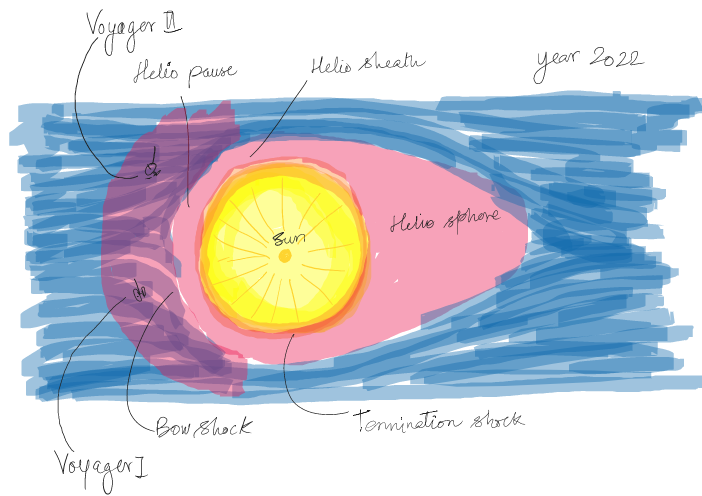 Voyager II
Helio pause
Helio sheath
year 2022
Helio sphere
Sun
Bow shock
Termination shock
Voyager I